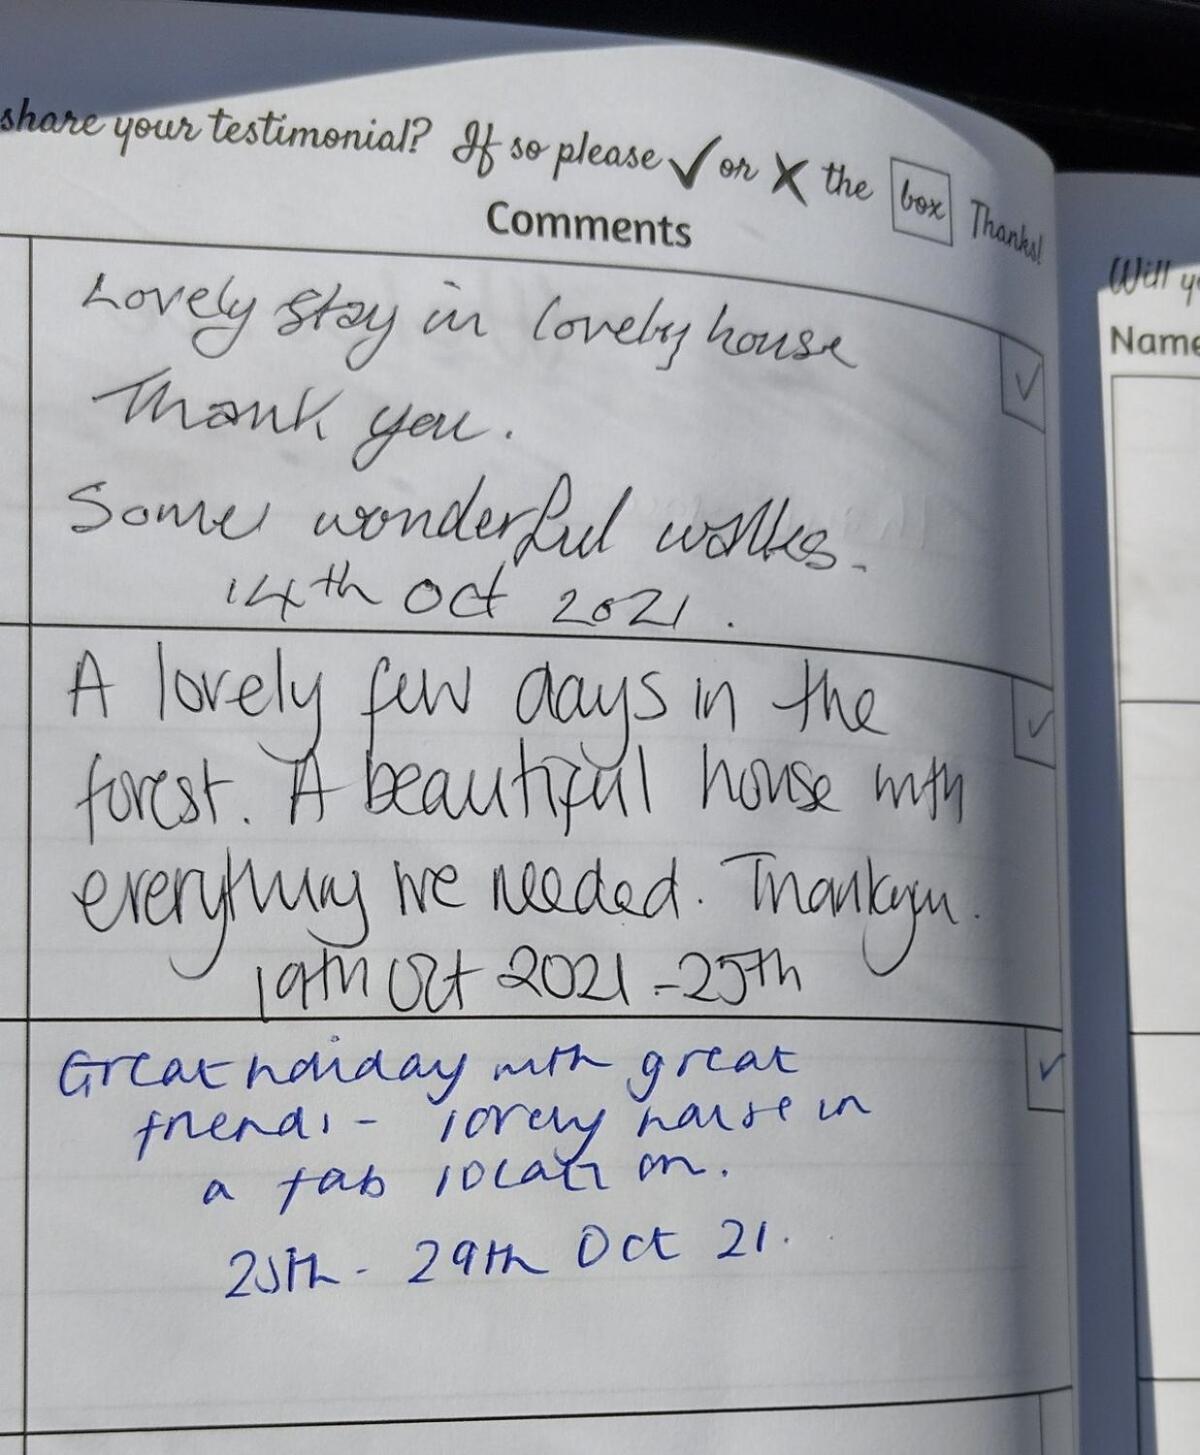 share your testimonial? If so please ✓ or X the box Thanks!
Comments
Lovely stay in lovely house
Thank you.
Some wonderful walks.
14th Oct 2021.
A lovely few days in the
forest. A beautiful house with
everything we needed. Thankyou.
19th Oct 2021 - 25th
Great holiday with great
friends - lovely house in
a fab location.
25th - 29th Oct 21.
Will
Name